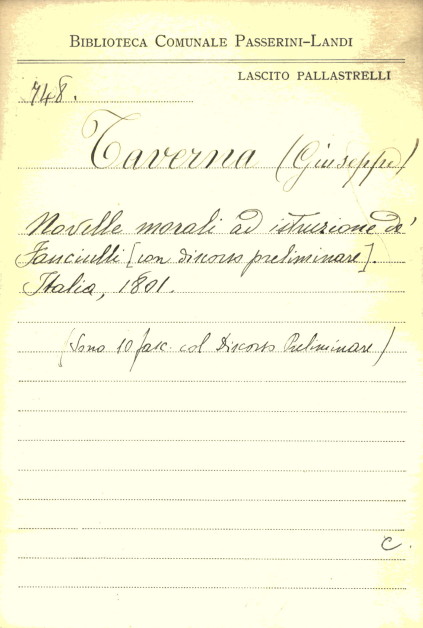 BIBLIOTECA COMUNALE PASSERINI-LANDI
LASCITO PALLASTRELLI
748.
Taverna (Giuseppe)
Novelle morali ad istruzione de'
Fanciulli [con discorso preliminare].
Italia, 1801.
(Sono 10 fasc. col Discorso Preliminare)
C.